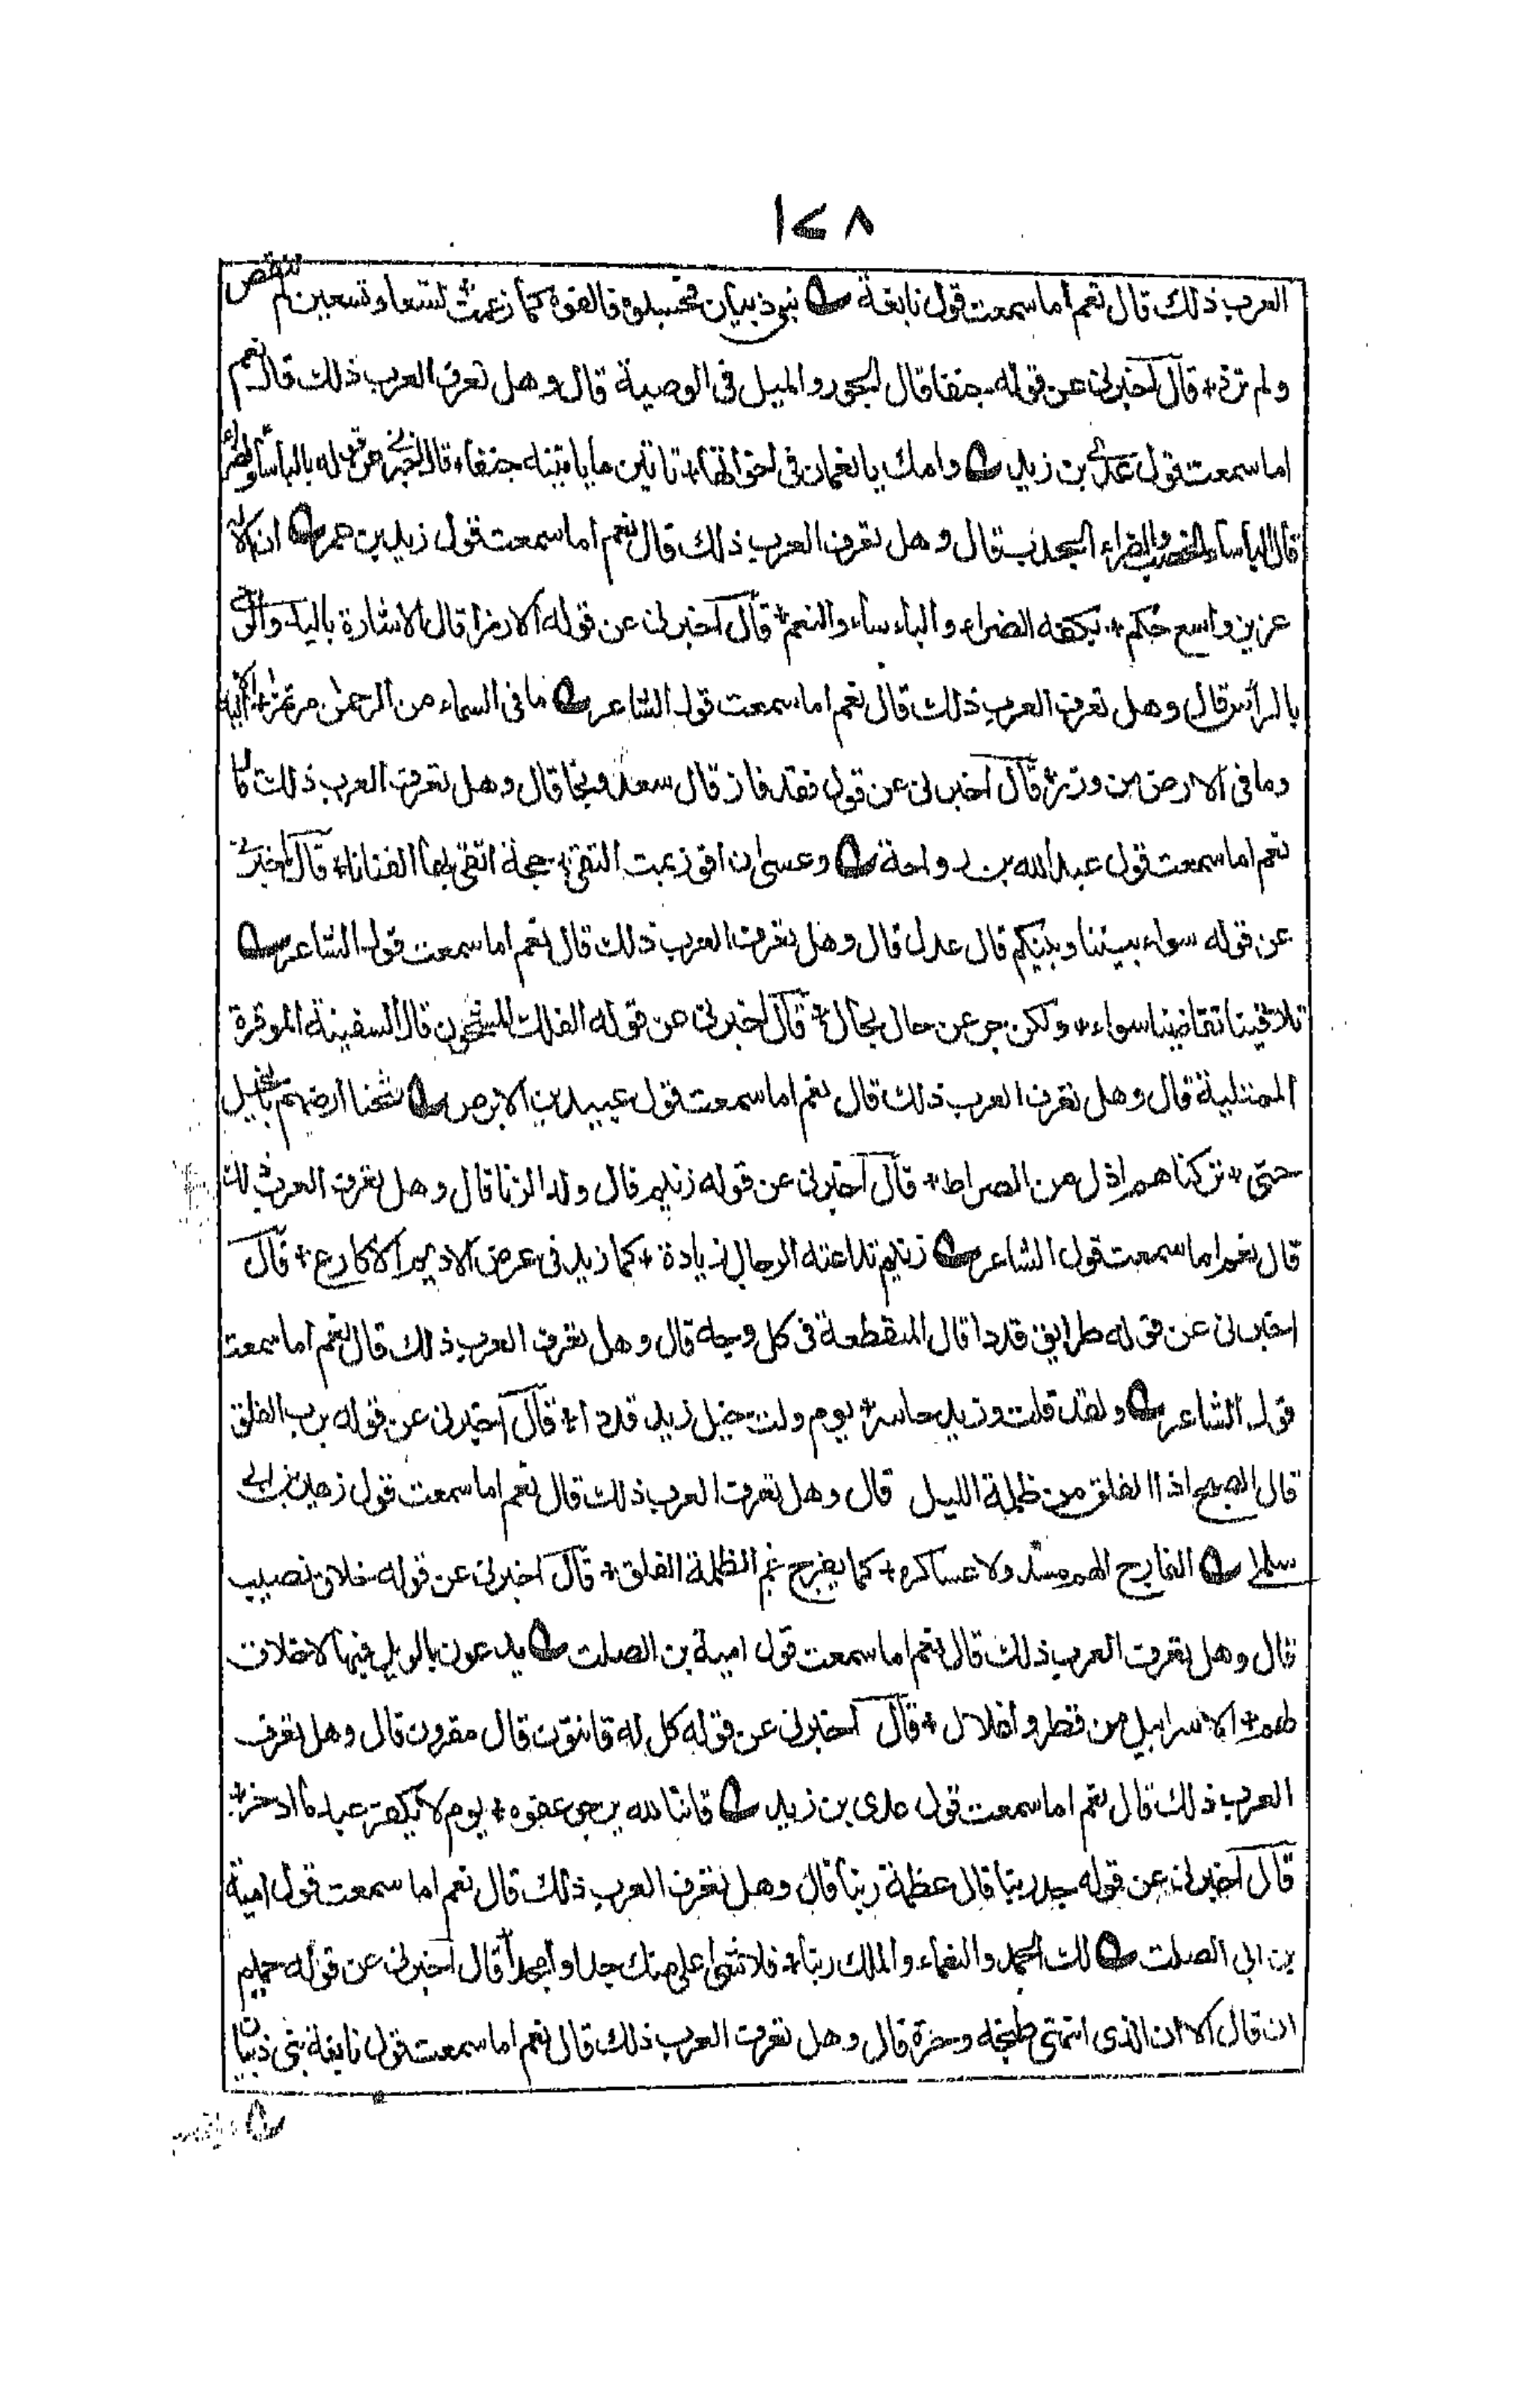 ١٤٨
العرب ذلك قال نعم اما سمعت قول نابغة بنى ذبيان فحسبوه فالفوه كما زعمت تسعا وتسعين لم تنقص
ولم تزد قال اخبرنى عن قوله جنفا قال الجور والميل فى الوصية قال وهل تعرف العرب ذلك قال نعم
اما سمعت قول عدى بن زيد وامك يا نعمان فى اخواتها تاتين ما ياتينه جنفا قال اخبرنى عن قوله بالباساء والضراء
قال الباساء الخصب والضراء الجدب قال وهل تعرف العرب ذلك قال نعم اما سمعت قول زيد بن عمرو ان الاله
عزيز واسع حكم بكفه الضراء والباساء والنعم قال اخبرنى عن قوله الا رمزا قال الاشارة باليد والوحى
بالرأس قال وهل تعرف العرب ذلك قال نعم اما سمعت قول الشاعر ما فى السماء من الرحمن مرتمز الا اليه
وما فى الارض من وزر قال اخبرنى عن قوله فقد فاز قال سعد ونجا قال وهل تعرف العرب ذلك قال
نعم اما سمعت قول عبد الله بن رواحة وعسى ان افوز ثمت القى حجة اتقى بها الفتانا قال اخبرنى
عن قوله سواء بيننا وبينكم قال عدل قال وهل تعرف العرب ذلك قال نعم اما سمعت قول الشاعر
تلاقينا تقاضينا سواء ولكن جر عن حال بحال قال اخبرنى عن قوله الفلك المشحون قال السفينة الموقرة
الممتلية قال وهل تعرف العرب ذلك قال نعم اما سمعت قول عبيد بن الابرص شحنا ارضهم بالخيل
حتى تركناهم اذل من الصراط قال اخبرنى عن قوله زنيم قال ولد الزنا قال وهل تعرف العرب ذلك
قال نعم اما سمعت قول الشاعر زنيم تداعته الرجال زيادة كما زيد فى عرض الاديم الاكارع قال
اخبرنى عن قوله طرايق قددا قال المنقطعة فى كل وجه قال وهل تعرف العرب ذلك قال نعم اما سمعت
قول الشاعر ولقد قلت وزيد حاسر يوم ولت خيل زيد قددا قال اخبرنى عن قوله برب الفلق
قال الصبح اذا انفلق من ظلمة الليل قال وهل تعرف العرب ذلك قال نعم اما سمعت قول زهير بن ابى
سلمى الفارج الهم مسد ولا عساكره كما يفرج غم الظلمة الفلق قال اخبرنى عن قوله خلاق نصيب
قال وهل تعرف العرب ذلك قال نعم اما سمعت قول امية بن الصلت يدعون بالويل فيها لا خلاق
لهم الا سرابيل من قطر واغلال قال اخبرنى عن قوله كل له قانتون قال مقرون قال وهل تعرف
العرب ذلك قال نعم اما سمعت قول عدى بن زيد قانتا لله يرجو عفوه يوم لا يكفر عبد ما ادخر
قال اخبرنى عن قوله جد ربنا قال عظمة ربنا قال وهل تعرف العرب ذلك قال نعم اما سمعت قول امية
بن ابى الصلت لك الحمد والنعماء والملك ربنا فلا شئ اعلى منك جدا وامجدا قال اخبرنى عن قوله حميم
ان قال الان الذى انتهى طبخه وحره قال وهل تعرف العرب ذلك قال نعم اما سمعت قول نابغة بنى ذبيان